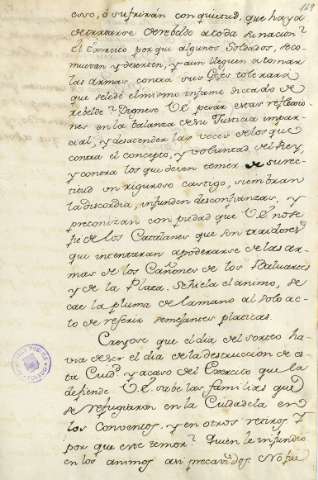 169
caso, ó sufrirán con quietud, que haya
de tratarse de rebelde a toda la nacion?
El Exercito porque algunos Soldados, se co-
muevan y deserten, y aun lleguen a tomar
las armas contra sus Gefes tolerará
que se le dé el mismo infame dictado de
rebelde? Dignese V.E. pesar estas reflexio-
nes en la balanza de su Justicia impar-
cial, y desatender las voces de los que
contra el concepto, y voluntad del Rey,
y contra los que deven temer de su rec-
titud un riguroso castigo, siembran
la discordia, infunden desconfianzas, y
preconizan con piedad que V.E. no se
fie de los Catalanes que son traidores
que intentaran apoderarse de las ar-
mas de los Cañones de los Baluartes
y de la Plaza. Se hiela el animo, se
cae la pluma de la mano al solo ac-
to de referir semejantes platicas.
Creyose que el dia del sorteo ha-
via de ser el dia de la destruccion de es-
ta Ciud. y acaso del Exercito que la
defiende V.E. sabe las familias que
se refugiaron en la Ciudadela en
los Conventos, y en otros retiros. Y
por que este temor? Quien le infundió
en los animos assi precavidos No fue